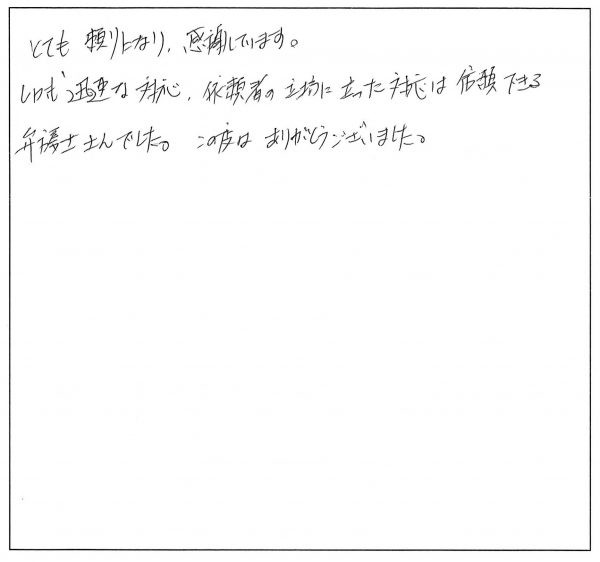 とても頼りになり、感謝しています。
いつも迅速な対応、依頼者の立場に立った対応は信頼できる
弁護士さんでした。この度はありがとうございました。